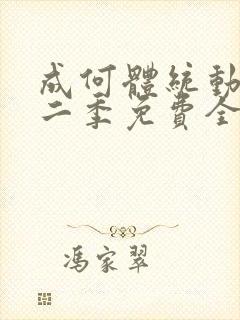 成何體統動
二季免費全
馮家翠